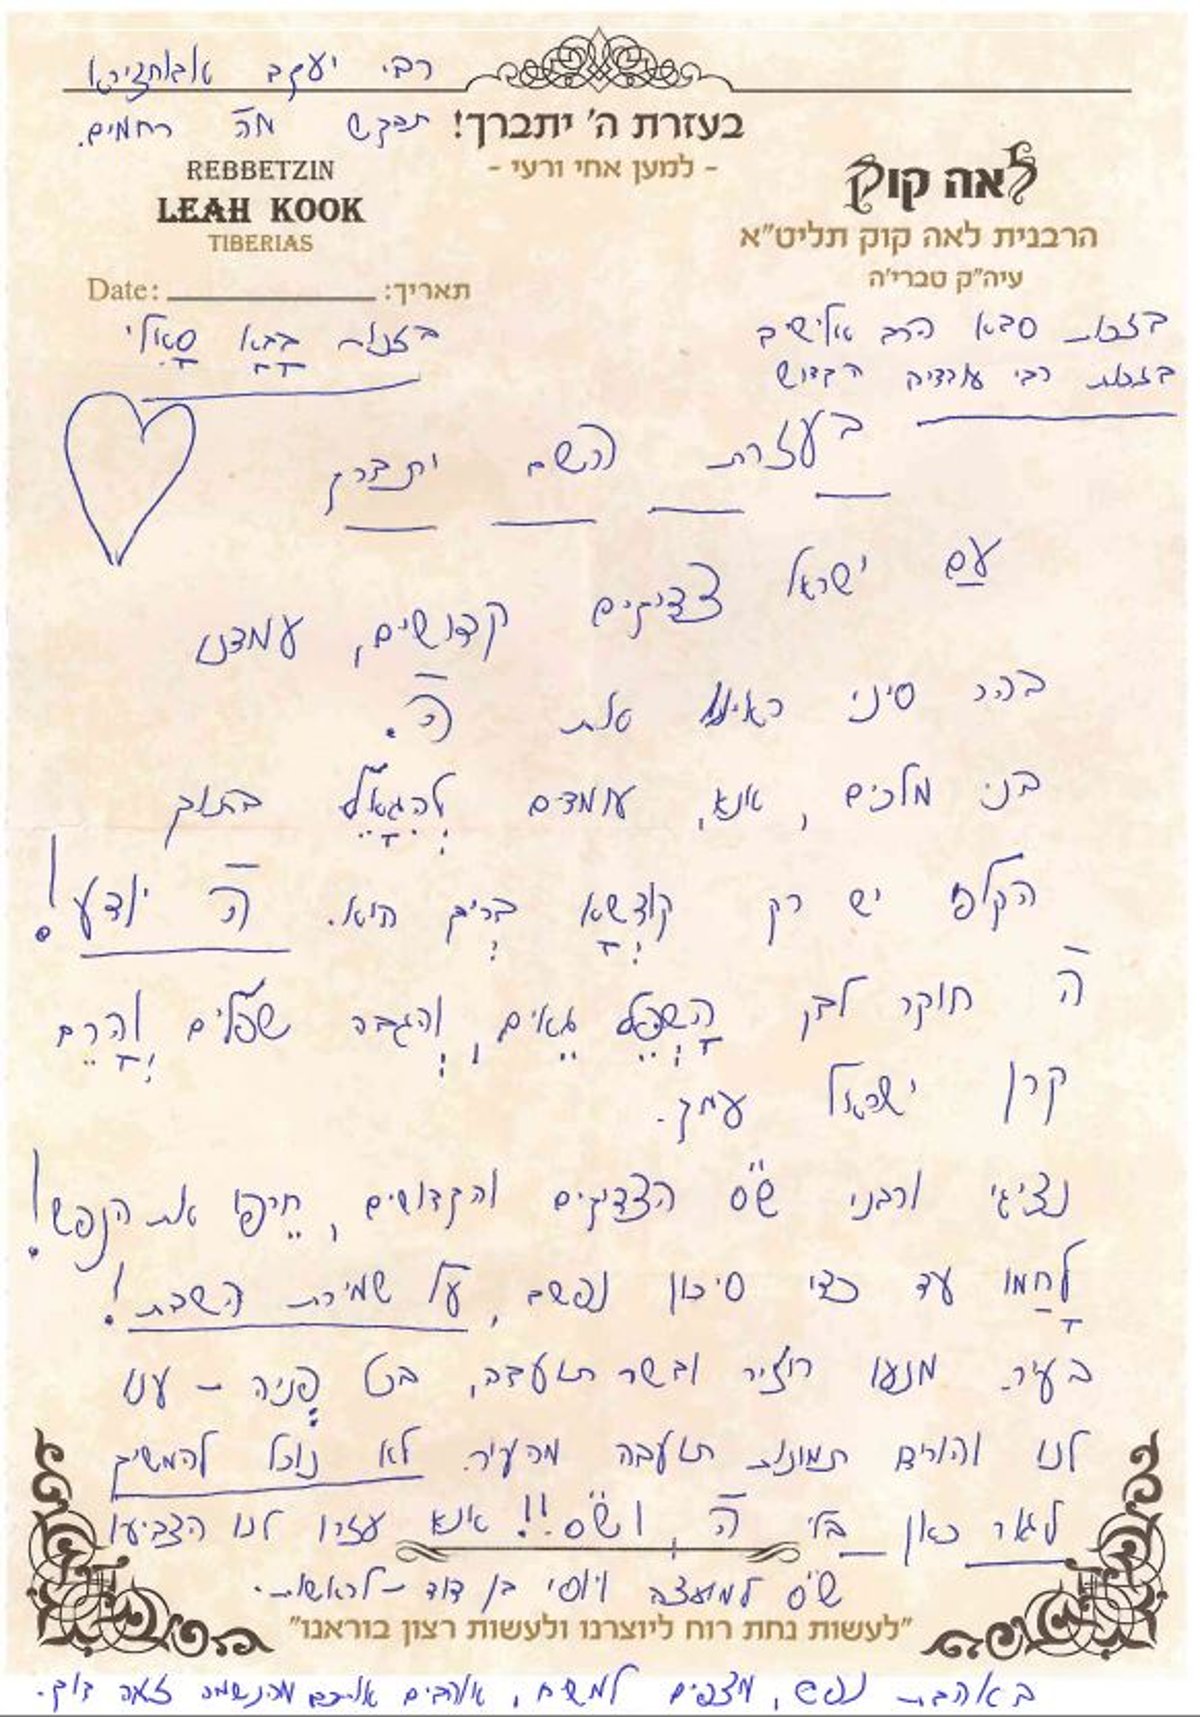 רבי יעקב אבוחצירא
תבקש מה' רחמים.
בעזרת ה' יתברך!
- למען אחי ורעי -
REBBETZIN
LEAH KOOK
TIBERIAS
Date: תאריך:
לאה קוק
הרבנית לאה קוק תליט"א
עיה"ק טברי'ה
בזכות סבא הרב אלישיב
בזכות רבי עובדיה הקדוש
בזכות בָּבָּא סָאלִי
בעזרת השם יתברך
עם ישראל צדיקים קדושים, עמדנו
בהר סיני ראינו את ה'.
בני מלכים, אנא, עומדים לְהִגָּאֵל בתוך
הקלפי יש רק קודְשָׁא בְּרִיך הוא. ה' יודע!
ה' חוקר לבן הָשְׁפֵּל גֵאים, וְהגבה שפלים וְהָרֵם
קרן ישראל עמך.
נציגי ורבני ש"ס הצדיקים והקדושים, חֵרפו את הנפש!
לָחֲמו עד כדי סיכון נפשם, על שמירת השבת!
בעיר. מנעו חזיר ובשר תועבה, בכל פְּניה - ענו
לנו והורידו תמונות תועבה מהעיר. לא נוכל להמשיך
לגור כאן בלי ה', וש"ס!! אנא עזרו לנו הצביעו
ש"ס למועצה ויוסי בן דוד - לראשות.
"לעשות נחת רוח ליוצרנו ולעשות רצון בוראנו"
באהבת נפש, מצפים למשיח, אוהבים אתכם מהנשמה לאה קוק.